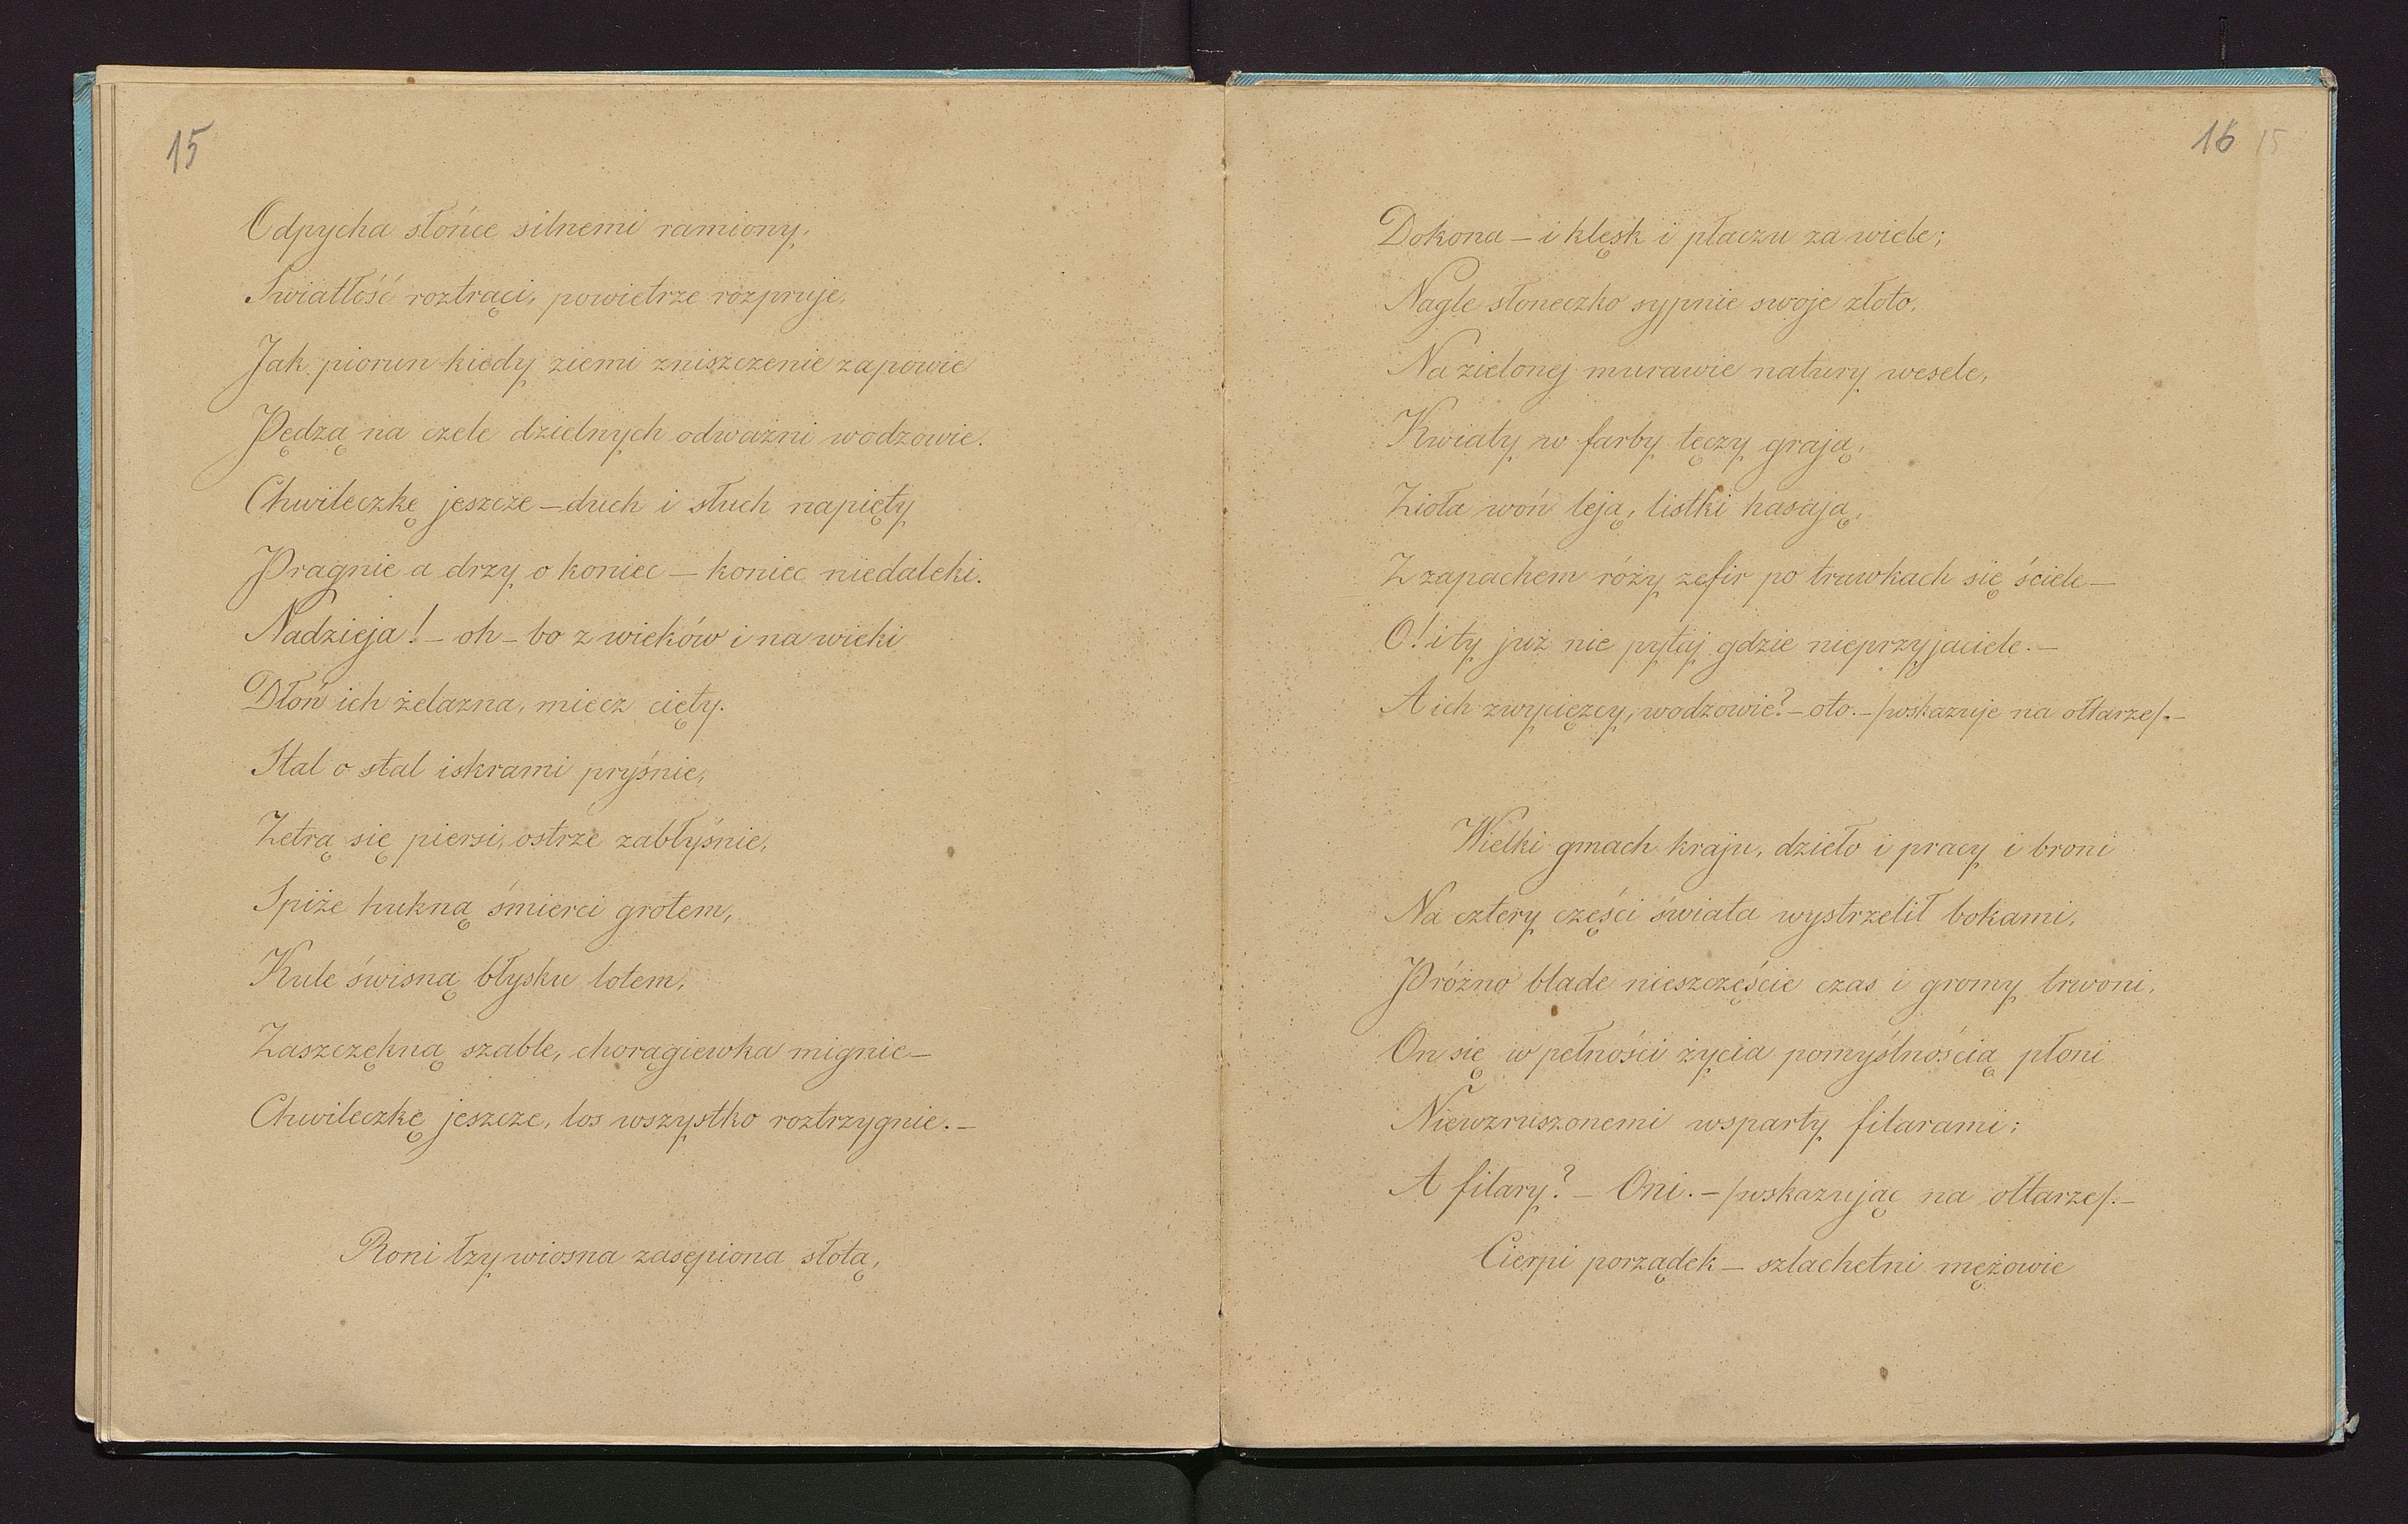 15
Odpycha słońce silnemi ramiony,
Światłość roztrąci, powietrze rozpruje,
Jak piorun kiedy ziemi zniszczenie zapowie
Pędzą na czele dzielnych odważni wodzowie.
Chwileczkę jeszcze – duch i słuch napięty
Pragnie a drzy o koniec – koniec niedaleki.
Nadzieja! – oh – bo z wieków i na wieki
Dłoń ich żelazna, miecz cięty.
Stal o stal iskrami pryśnie,
Zetrą się piersi, ostrze zabłyśnie,
Spiże hukną śmierci grotem,
Kule świsną błysku lotem,
Zaszczękną szable, chorągiewka mignie –
Chwileczkę jeszcze, los wszystko roztrzygnie. –
Roni łzy wiosna zasępiona słotą,
16 15
Dokona – i klęsk i płaczu za wiele;
Nagle słoneczko sypnie swoje złoto,
Na zielonej murawie natury wesele,
Kwiaty w farby tęczy grają,
Zioła woń leją, listki hasają,
Z zapachem róży zefir po trawkach się ściele –
O! i ty już nie pytaj gdzie nieprzyjaciele. –
A ich zwycięzcy, wodzowie? – oto. – /wskazuje na ołtarze/. –
Wielki gmach kraju, dzieło i pracy i broni
Na cztery części świata wystrzelił bokami,
Próżno blade nieszczęście czas i gromy trwoni,
On się w pełności życia pomyślnością płoni
Niewzruszonemi wsparty filarami;
A filary? – Oni. – /wskazując na ołtarze/. –
Cierpi porządek – szlachetni mężowie